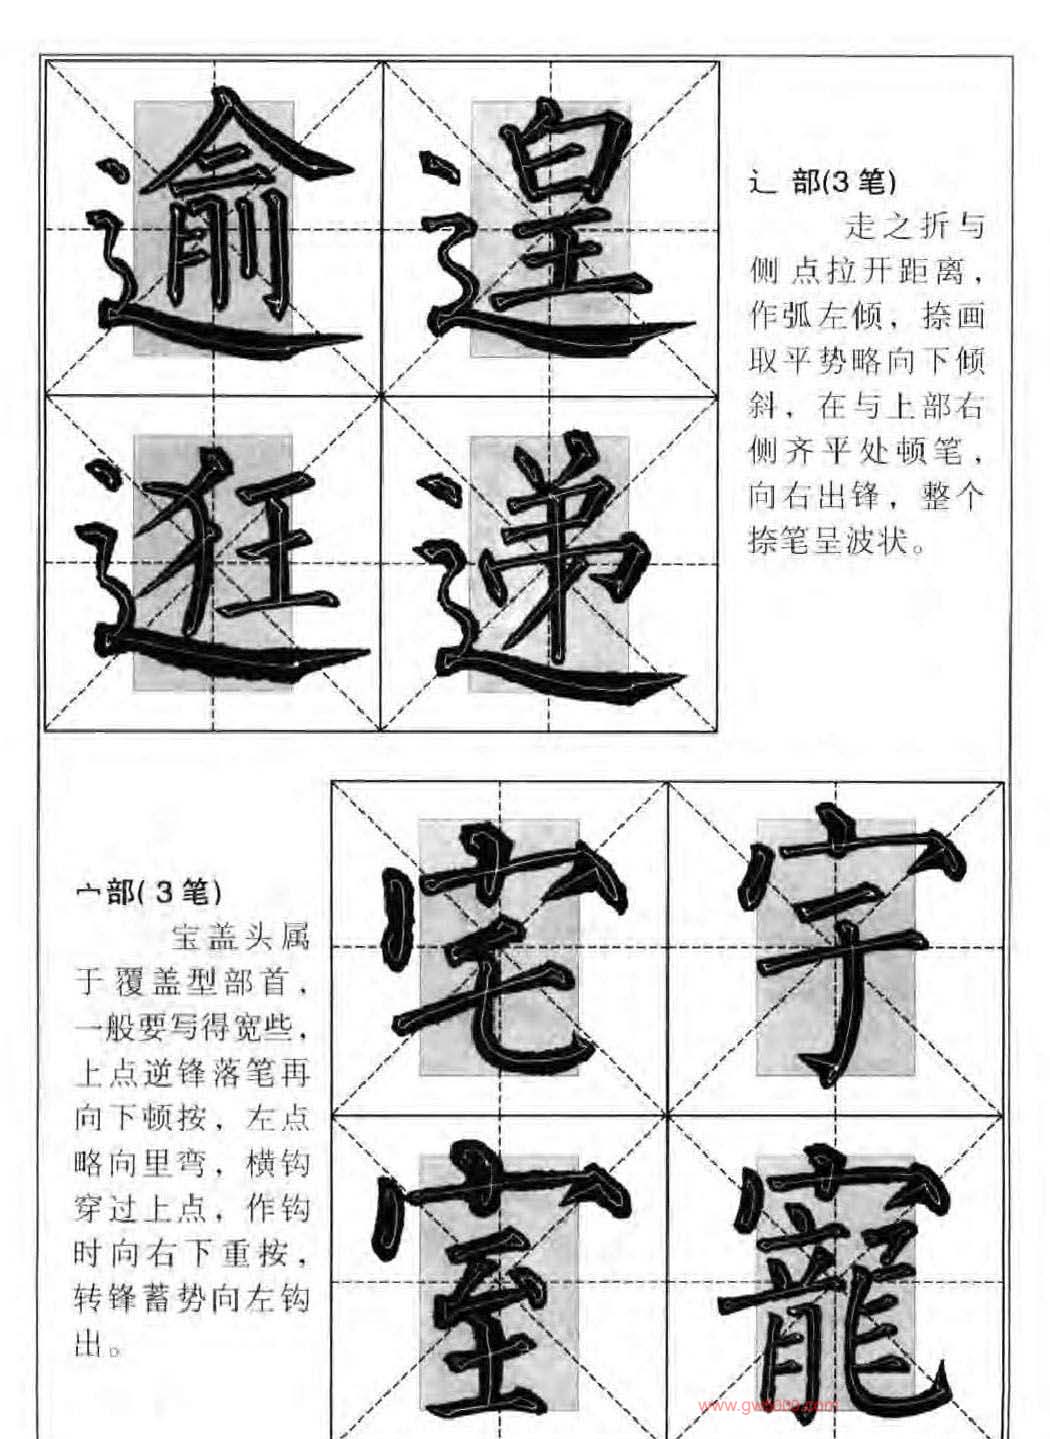 逾 遑
逛 递
辶部(3笔)
走之折与
侧点拉开距离，
作弧左倾，捺画
取平势略向下倾
斜，在与上部右
侧齐平处顿笔，
向右出锋，整个
捺笔呈波状。
宀部(3笔)
宝盖头属
于覆盖型部首，
一般要写得宽些，
上点逆锋落笔再
向下顿按，左点
略向里弯，横钩
穿过上点，作钩
时向右下重按，
转锋蓄势向左钩
出。
宅 字
室 寵
www.gw5000.com